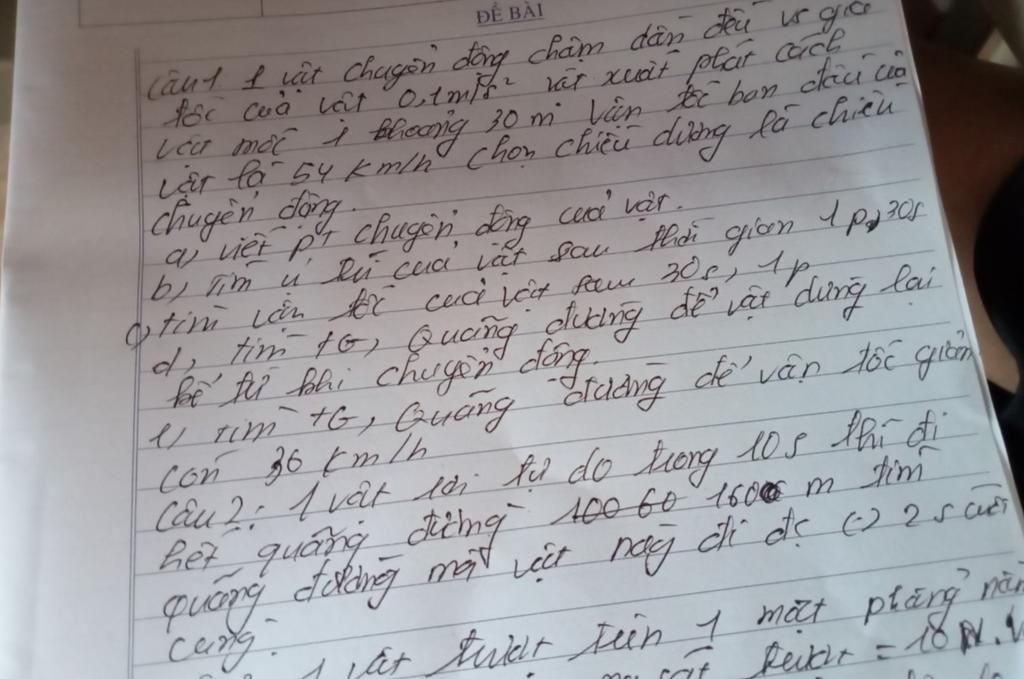 ĐỀ BÀI
Câu 1 1 vật chuyển động chậm dần đều vs gia
tốc của vật 0,1m/s² vật xuất phát cách
vật mốc 1 khoảng 30 m vận tốc ban đầu của
vật là 54 km/h chọn chiều dương là chiều
chuyển động.
a, viết pt chuyển động của vật.
b, tìm vị trí của vật sau thời gian 1p, 30s
c, tìm vận tốc của vật sau 30s, 1p
d, tìm tG, Quãng đường để vật dừng lại
kể từ khi chuyển động.
e, tìm tG, Quãng đường để vận tốc giảm
còn 36 km/h
Câu 2: 1 vật rơi tự do trong 10s thì đi
hết quãng đường 100 60 1600 m tìm
quãng đường mà vật này đi đc (-) 2s cuối
cùng.
1 vật trượt trên 1 mặt phẳng
= 18 N.